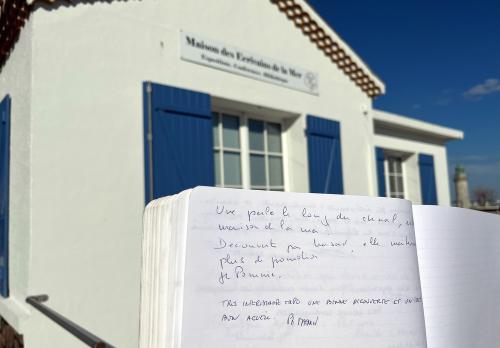 Maison des Ecrivains de la Mer
Expositions, Conférences, Bibliothèque
Une perle le long du chenal,
maison de la mer.
Découverte par hasard, elle
plus de promotion
TRES INTERESSANTE EXPO UNE BONNE DECOUVERTE ET UN
BON ACCUEIL